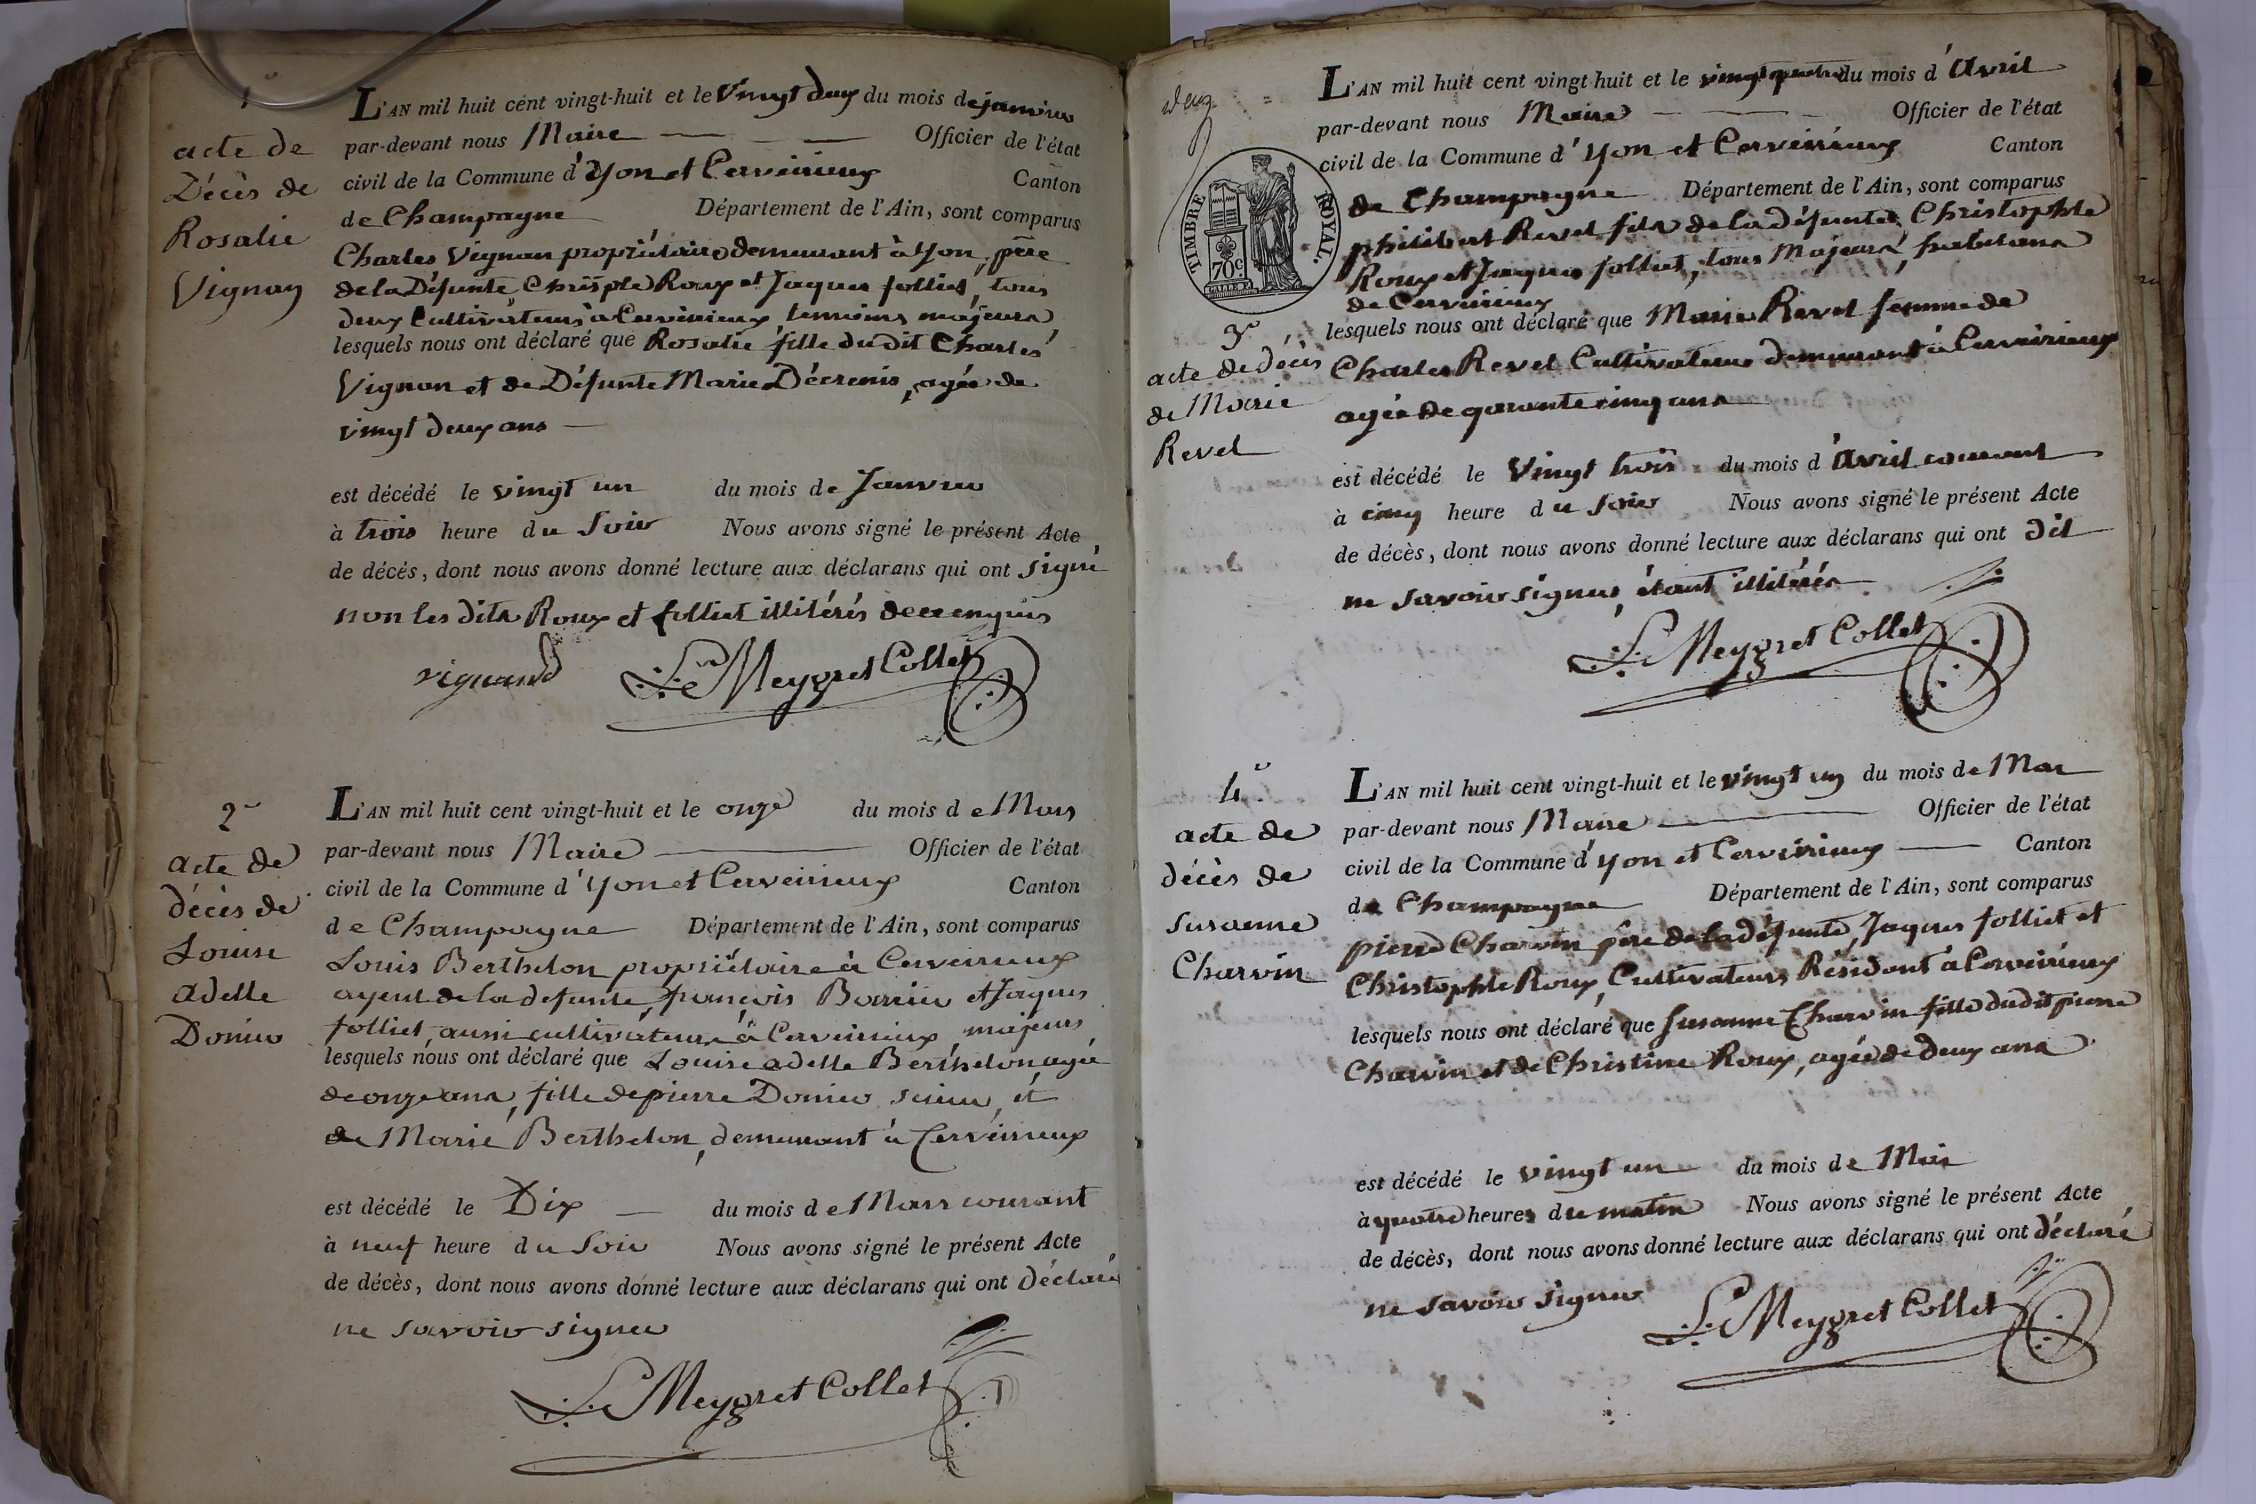 1.r
acte de
Décès de
Rosalie
Vignon
L'AN mil huit cent vingt-huit et le vingt deux du mois de janvier
par-devant nous Maire Officier de l'état
civil de la Commune d'yon et Cerveirieux Canton
de Champagne Département de l'Ain, sont comparus
Charles Vignon propriétaire demeurant à yon, père
de la Défunte, Christple Roux et Jaques folliet, tous
deux Cultivateurs à Cerveirieux, temoins majeurs,
lesquels nous ont déclaré que Rosalie fille du dit Charles
Vignon et de Défunte Marie Décrenis, agée de
vingt deux ans
est décédé le vingt un du mois de Janvier
à trois heure du soir Nous avons signé le présent Acte
de décés, dont nous avons donné lecture aux déclarans qui ont signé
non les dits Roux et folliet illitérés de ce enquis
vignand L. Meygret Collet
2.
acte de
décès de
Louise
adelle
Donier
L'AN mil huit cent vingt-huit et le onze du mois de Mars
par-devant nous Maire Officier de l'état
civil de la Commune d'yon et Cerveirieux Canton
de Champagne Département de l'Ain, sont comparus
Louis Berthelon propriétaire à Cerveirieux
ayeul de la defunte, françois Barrier et Jaques
folliet, aussi cultivateurs à Cerveirieux, majeurs
lesquels nous ont déclaré que Louise adelle Berthelon agée
de onze ans, fille de pierre Donier, et
de Marie Berthelon, demeurant à Cerveirieux
est décédé le Dix du mois de Mars courant
à neuf heure du soir Nous avons signé le présent Acte
de décès, dont nous avons donné lecture aux déclarans qui ont déclaré
ne savoir signer
L. Meygret Collet
deux
TIMBRE ROYAL.
70c.
3.
acte de décès
de Marie
Revel
L'AN mil huit cent vingt huit et le vingt quatre du mois d'avril
par-devant nous Maire Officier de l'état
civil de la Commune d'yon et Cerveirieux Canton
de Champagne Département de l'Ain, sont comparus
philibert Revel fils de la défunte, Christophle
Roux et Jaques folliet, tous Majeurs, habitans
de Cerveirieux
lesquels nous ont déclaré que Marie Revel femme de
Charles Revel Cultivateur demeurant à Cerveirieux
agée de quarante cinq ans
est décédé le vingt trois du mois d'avril courant
à cinq heure du soir Nous avons signé le présent Acte
de décès, dont nous avons donné lecture aux déclarans qui ont dit
ne savoir signer, étant illitérés
L. Meygret Collet
4.
acte de
décès de
Susanne
Charvin
L'AN mil huit cent vingt-huit et le vingt un du mois de Mai
par-devant nous Maire Officier de l'état
civil de la Commune d'yon et Cerveirieux Canton
de Champagne Département de l'Ain, sont comparus
pierre Charvin père de la défunte, Jaques folliet et
Christophle Roux, Cultivateurs Résidant à Cerveirieux
lesquels nous ont déclaré que Susanne Charvin fille du dit pierre
Charvin et de Christine Roux, agée de deux ans
est décédé le vingt un du mois de Mai
à quatre heures du matin Nous avons signé le présent Acte
de décès, dont nous avons donné lecture aux déclarans qui ont déclaré
ne savoir signer
L. Meygret Collet